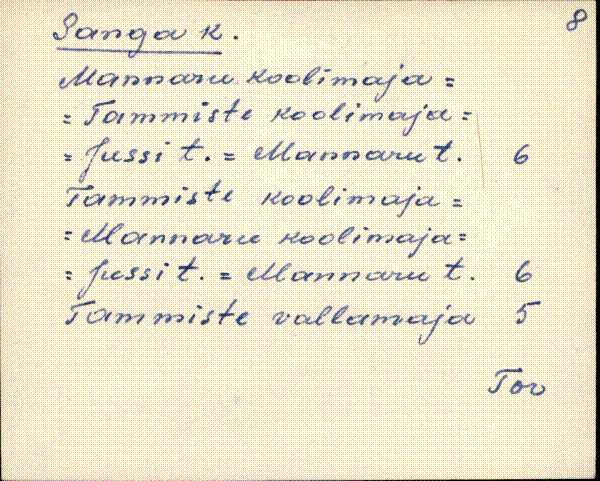 Sanga k.
8
Mannaru koolimaja =
= Tammiste koolimaja =
= Jussi t. = Mannaru t. 6
Tammiste koolimaja =
= Mannaru koolimaja =
= Jussi t. = Mannaru t. 6
Tammiste vallamaja 5
Tor